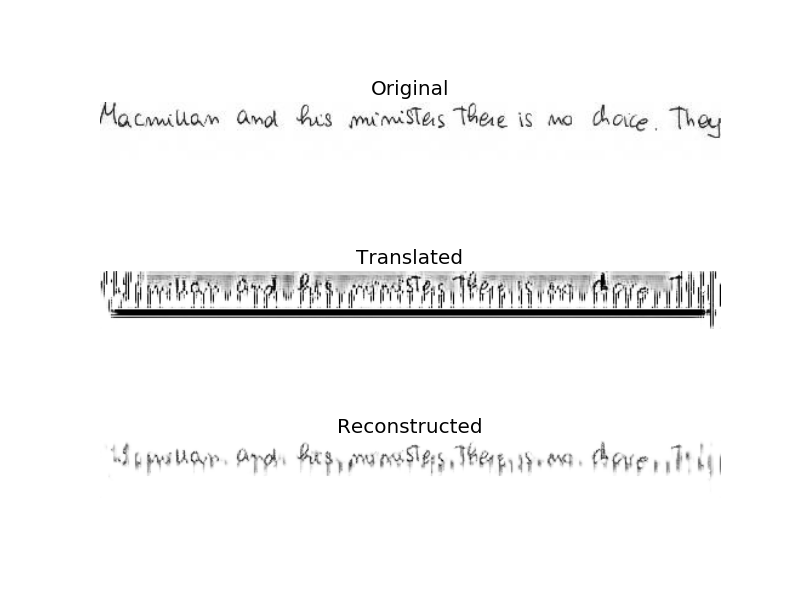 Original
Macmillan and his ministers There is no choice. They
Translated
and his ministers There is no
Reconstructed
and his ministers There is no